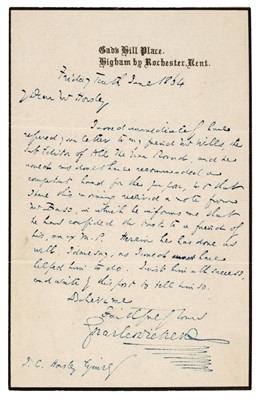 Gad's Hill Place,
Higham by Rochester, Kent.
Friday Tenth June 1864
My Dear Mr Horsley
I would immediately have
referred your letter to my friend Mr Wills, the
Sub Editor of All the Year Round, and he
would no doubt have recommended a
competent hand for the purpose, but that
I have this morning received a note from
Mr Bass, in which he informs me that
he has confided the task to a friend of
his, an ex M.P. Herein he has done as
well, I dare say, as I could have
helped him to do. I wish him all success,
and write by this post to tell him so.
Believe me
Faithfully Yours
Charles Dickens
J. C. Horsley Esquire